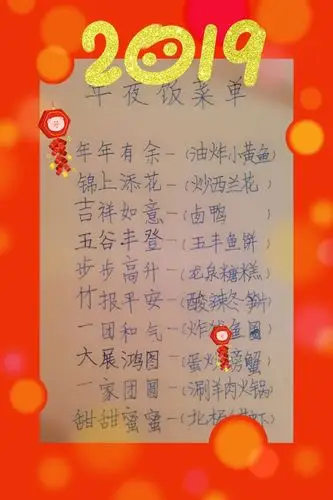 2019
年夜饭菜单
年年有余-(油炸小黄鱼)
锦上添花-(炒西兰花)
吉祥如意-(卤鸭)
五谷丰登-(五丰鱼饼)
步步高升-(龙泉糖糕)
竹报平安-(酸辣冬笋)
一团和气-(炸 鱼圆
大展鸿图-(蛋炒螃蟹)
一家团圆-(涮羊肉火锅)
甜甜蜜蜜-(北极